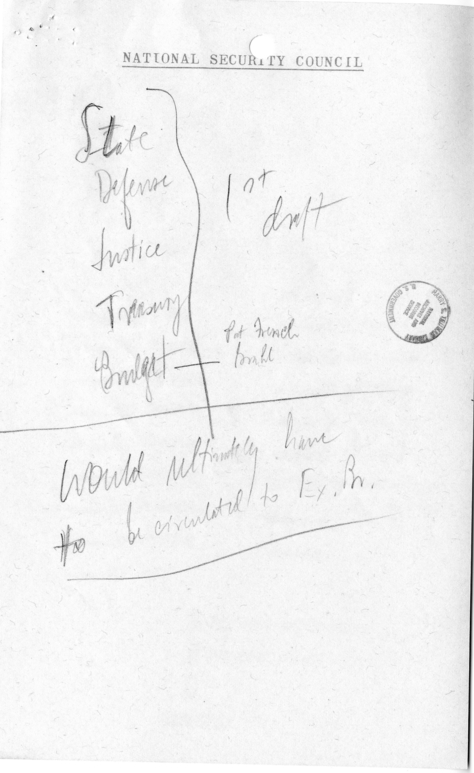 NATIONAL SECURITY COUNCIL
State
Defense
Justice
Treasury
Budget
1st
draft
Pat French
Would ultimately have
to be circulated to Ex. Br.
HARRY S. TRUMAN LIBRARY